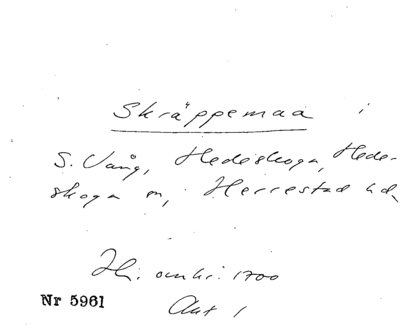 Skräppemaa i
S. Vång, Hedeskoga, Hede-
skoga sn, Herrestad hd
Hi. omkr. 1700
Akt 1
Nr 5961